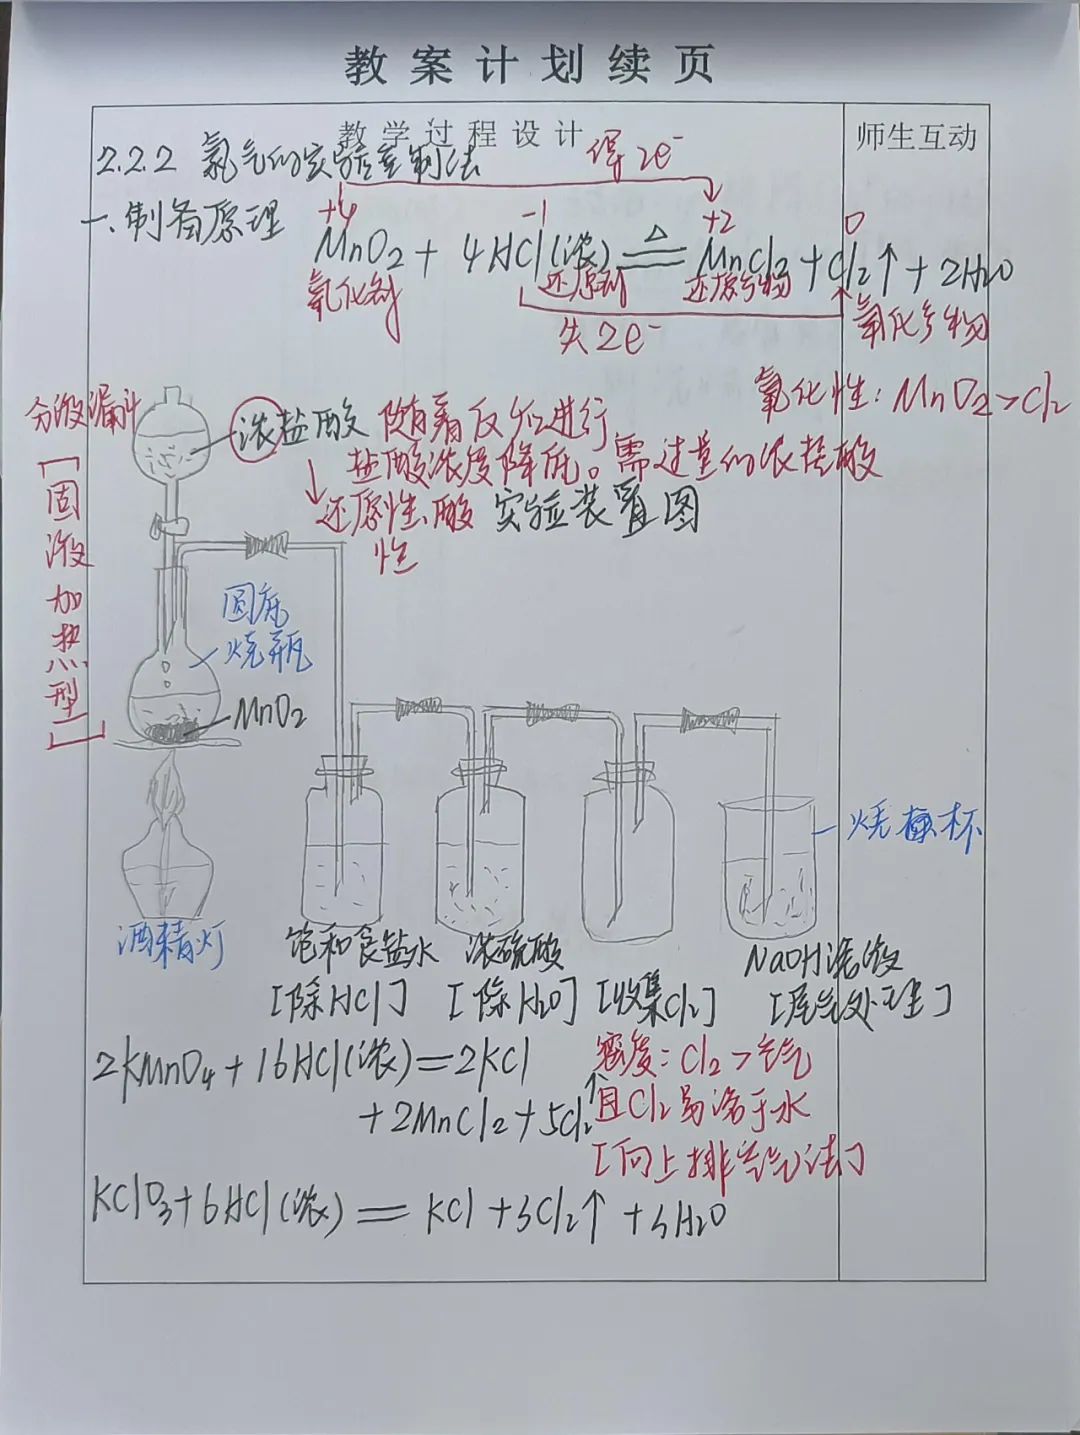 教案计划续页
教学过程设计
师生互动
2.2.2 氯气的实验室制法
得2e⁻
一、制备原理
+4 -1 +2 0
MnO₂ + 4HCl(浓) ≜ MnCl₂ + Cl₂↑ + 2H₂O
氧化剂 还原剂 还原产物 氧化产物
失2e⁻
氧化性: MnO₂>Cl₂
分液漏斗
浓盐酸 随着反应进行
盐酸浓度降低。需过量的浓盐酸
↓还原性、酸性
实验装置图
[固液加热型]
圆底烧瓶
MnO₂
烧杯
酒精灯
饱和食盐水 浓硫酸 NaOH溶液
[除HCl] [除H₂O] [收集Cl₂] [尾气处理]
2KMnO₄+16HCl(浓)=2KCl
+2MnCl₂+5Cl₂↑
密度: Cl₂>空气
且Cl₂易溶于水
[向上排空气法]
KClO₃+6HCl(浓) = KCl +3Cl₂↑ +3H₂O